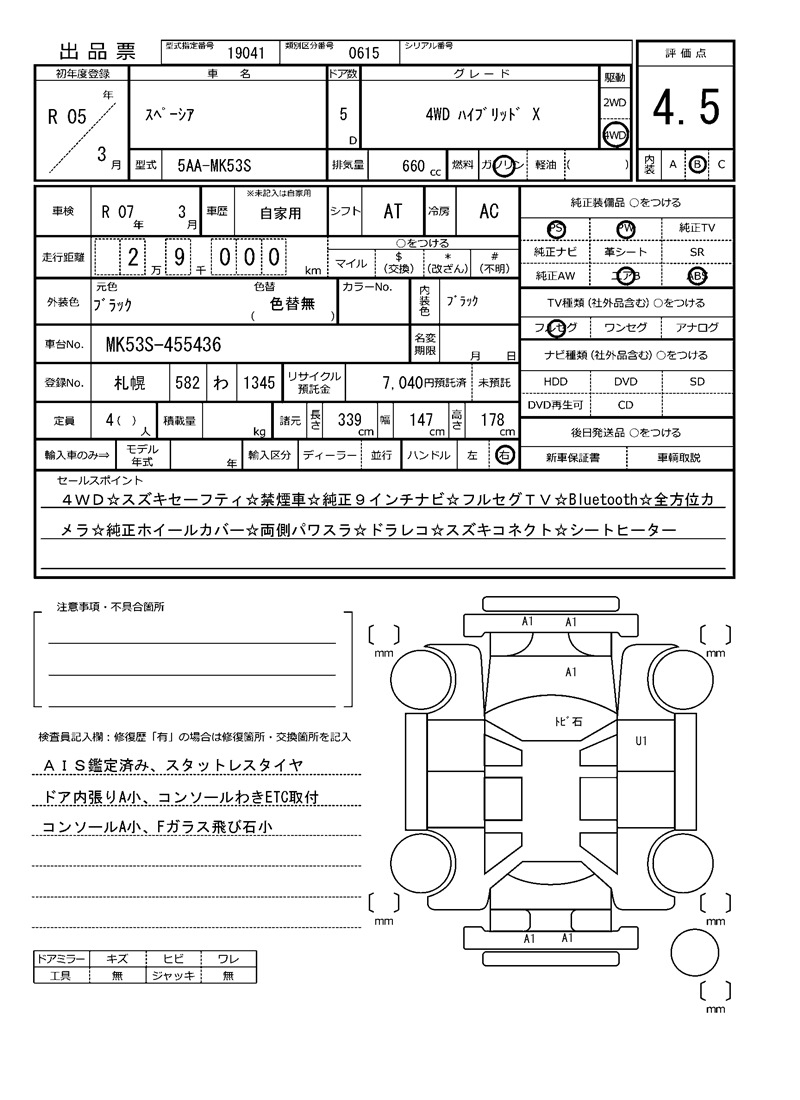 出品票 型式指定番号 19041 類別区分番号 0615 シリアル番号
評価点
4.5
内装 A B C
初年度登録 車名 ドア数 グレード 駆動
R 05 年 3 月
スペーシア 5 D 4WD ハイブリッド X
2WD
4WD
型式 5AA-MK53S 排気量 660 cc 燃料 ガソリン 軽油 ( )
車検 R 07 年 3 月 車歴 ※未記入は自家用 自家用 シフト AT 冷房 AC
走行距離 2 万 9 千 0 0 0 km
○をつける
マイル $ (交換) * (改ざん) # (不明)
外装色 元色 ブラック 色替 色替無 ( ) カラーNo. 内装色 ブラック
車台No. MK53S-455436 名変期限 月 日
登録No. 札幌 582 わ 1345 リサイクル預託金 7,040円預託済 未預託
定員 4 ( ) 人 積載量 kg 諸元 長さ 339 cm 幅 147 cm 高さ 178 cm
輸入車のみ⇒ モデル年式 年 輸入区分 ディーラー 並行 ハンドル 左 右
純正装備品 ○をつける
PS PW 純正TV
純正ナビ 革シート SR
純正AW エアB ABS
TV種類(社外品含む) ○をつける
フルセグ ワンセグ アナログ
ナビ種類(社外品含む) ○をつける
HDD DVD SD
DVD再生可 CD
後日発送品 ○をつける
新車保証書 車輌取説
セールスポイント
4WD☆スズキセーフティ☆禁煙車☆純正9インチナビ☆フルセグTV☆Bluetooth☆全方位カ
メラ☆純正ホイールカバー☆両側パワスラ☆ドラレコ☆スズキコネクト☆シートヒーター
注意事項・不具合箇所
検査員記入欄：修復歴「有」の場合は修復箇所・交換箇所を記入
AIS鑑定済み、スタットレスタイヤ
ドア内張りA小、コンソールわきETC取付
コンソールA小、Fガラス飛び石小
ドアミラー キズ ヒビ ワレ
工具 無 ジャッキ 無
A1 A1
mm mm
A1
トビ石
U1
mm mm
A1 A1
mm